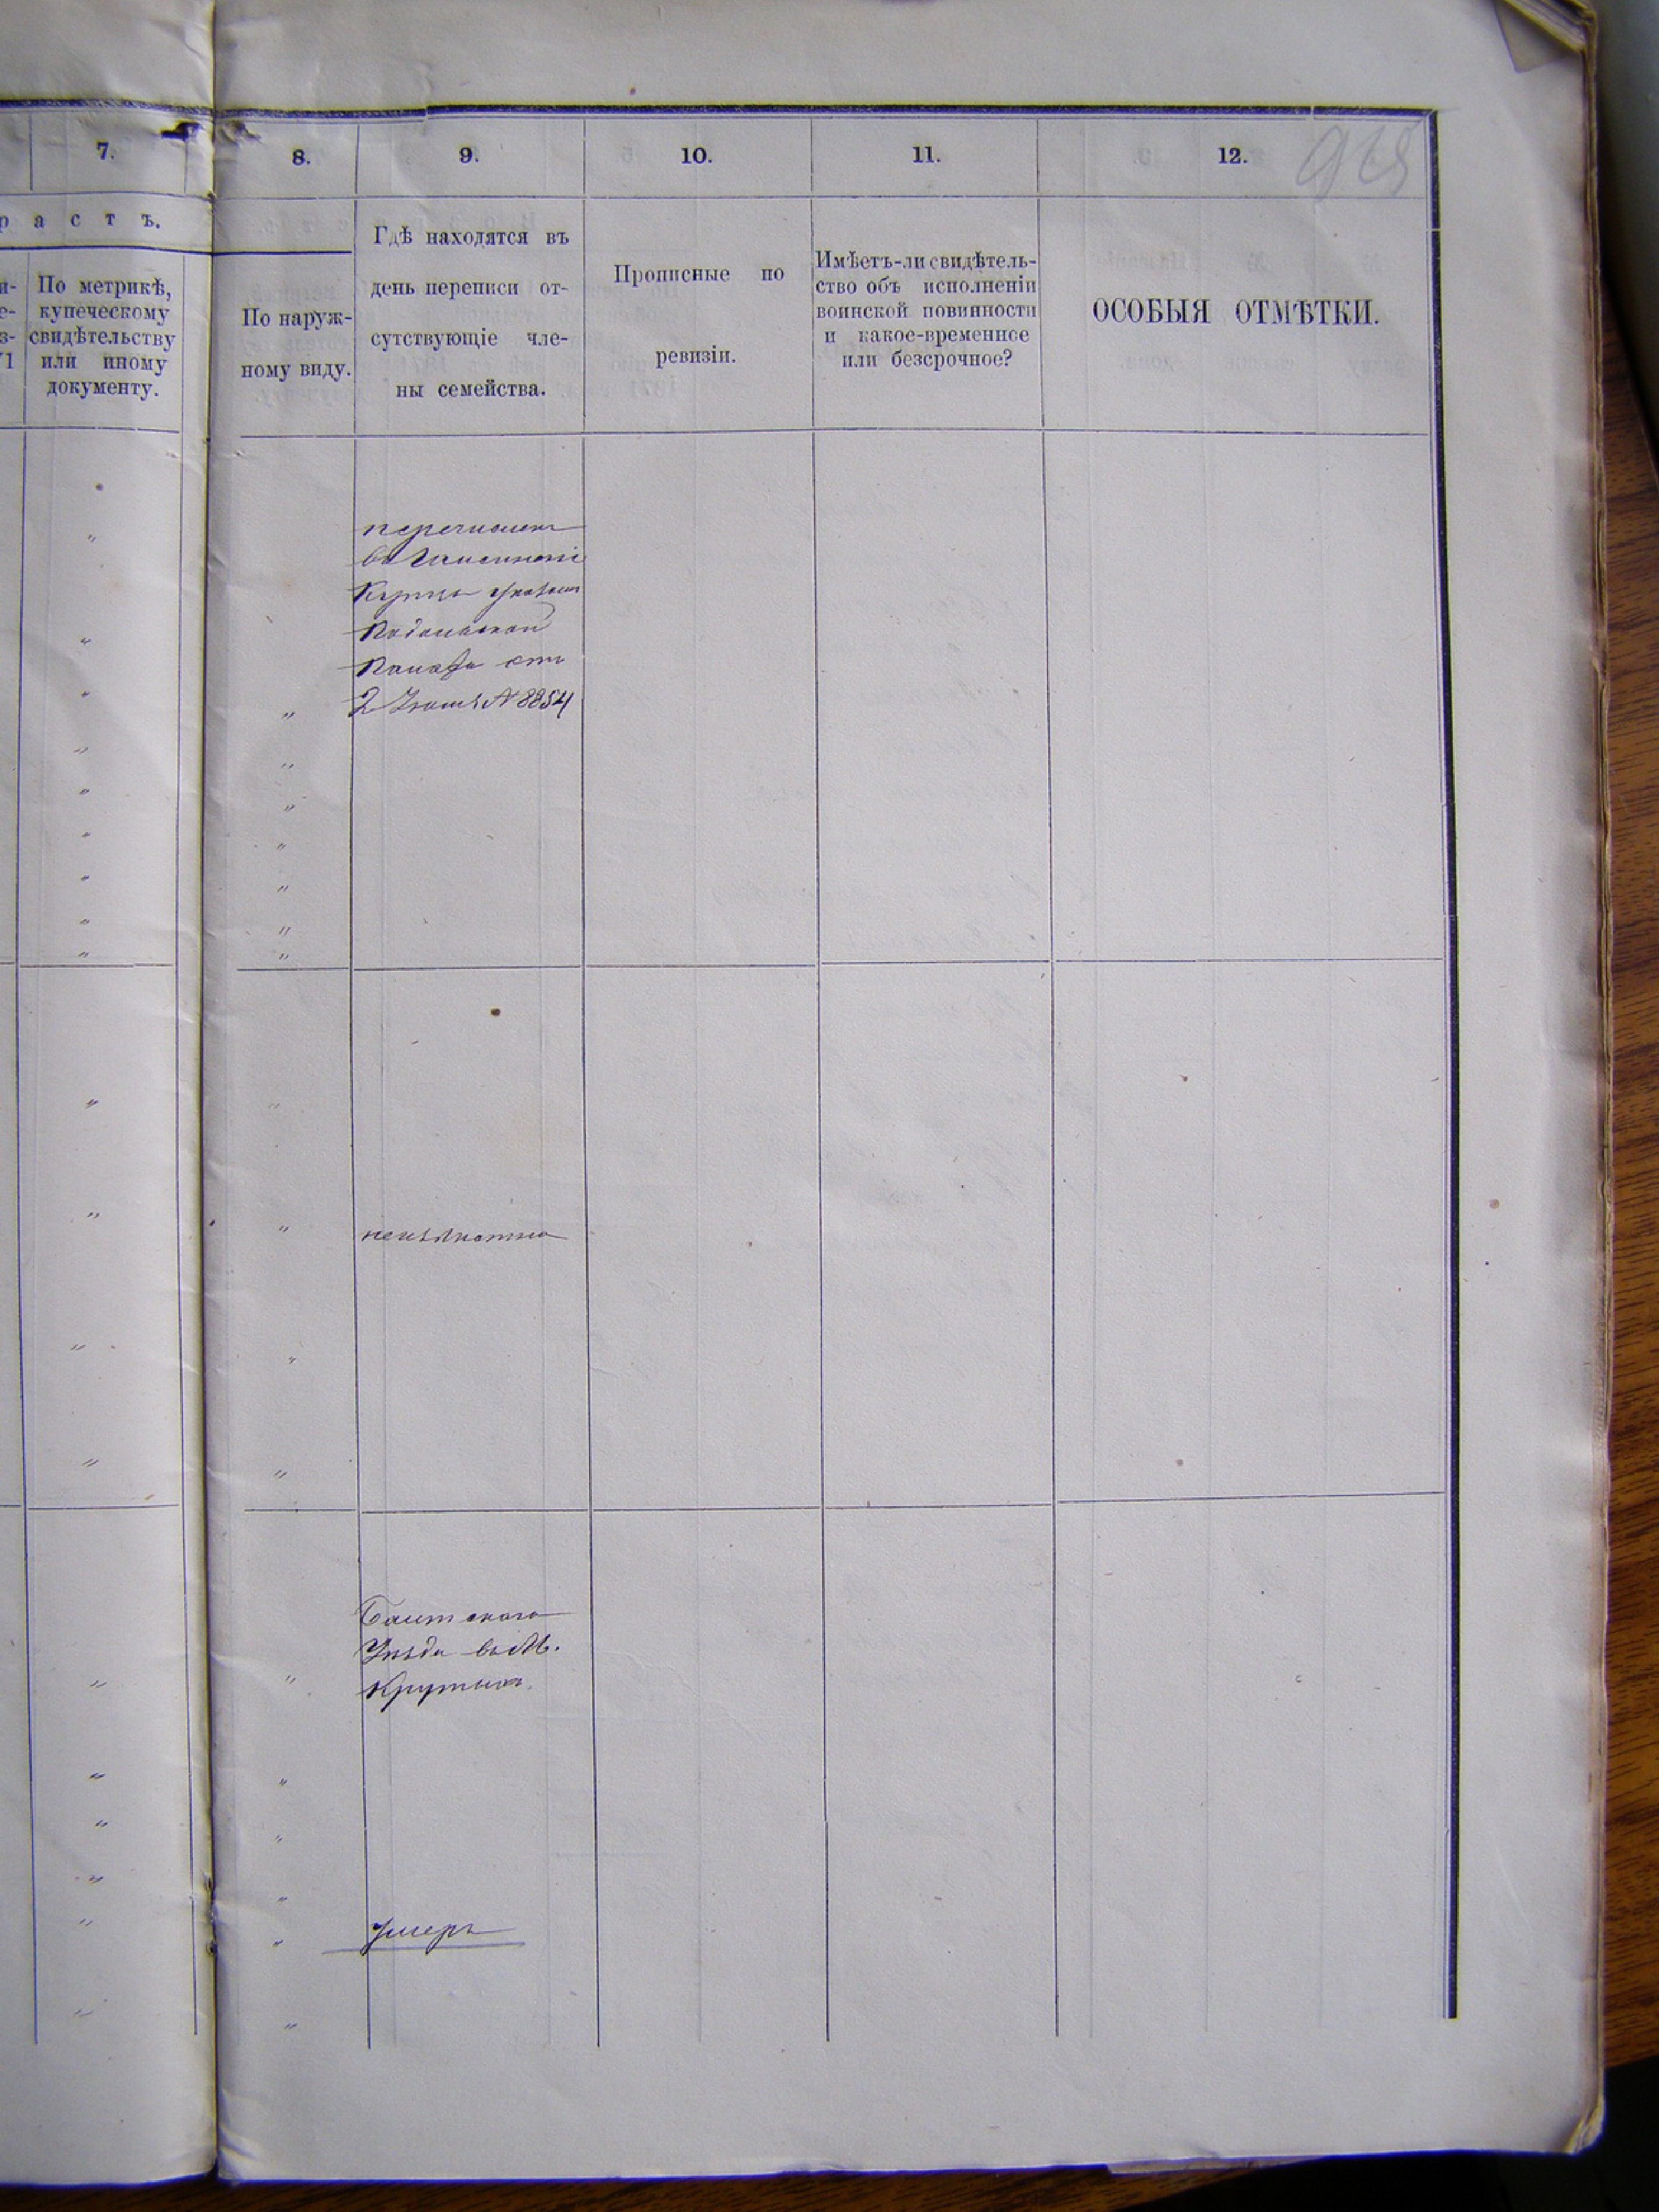 7.
8.
9.
10.
11.
12.
р а с т ъ.
и-
е-
з-
71
По метрикѣ,
купеческому
свидѣтельству
или иному
документу.
По наруж-
ному виду.
Гдѣ находятся въ
день переписи от-
сутствующіе чле-
ны семейства.
Прописные по
ревизіи.
Имѣетъ-ли свидѣтель-
ство объ исполненіи
воинской повинности
и какое-временное
или безсрочное?
ОСОБЫЯ ОТМѢТКИ.
перечисленъ
въ Гайсинскіе
Купцы указомъ
Подольской
Палаты отъ
2 Іюля № 8854
неизвѣстно
Балтскаго
Уѣзда въ м.
Крутыхъ.
Умеръ